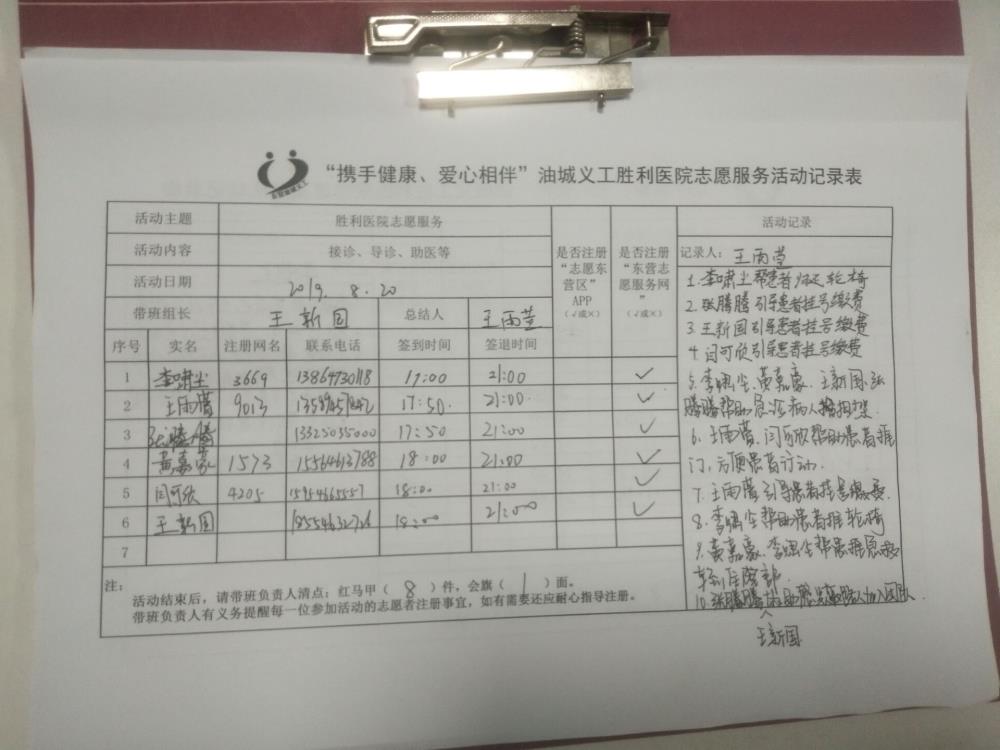 “携手健康、爱心相伴”油城义工胜利医院志愿服务活动记录表
活动主题 胜利医院志愿服务
活动内容 接诊、导诊、助医等
活动日期 2019.8.20
带班组长 王新国 总结人 王雨萱
是否注册“志愿东营区”APP（√或×）
是否注册“东营志愿服务网”（√或×）
序号 实名 注册网名 联系电话 签到时间 签退时间
1 李啸尘 3669 13864730118 17:00 21:00 ✓
2 王雨萱 9013 17:50 21:00 ✓
3 张腾腾 13325035000 17:50 21:00 ✓
4 黄嘉豪 1573 15564613788 18:00 21:00 ✓
5 闫可欣 4205 15954665557 18:00 21:00 ✓
6 王新国 18554632726 18:00 21:00 ✓
7
注：
活动结束后，请带班负责人清点：红马甲（8）件，会旗（1）面。
带班负责人有义务提醒每一位参加活动的志愿者注册事宜，如有需要还应耐心指导注册。
活动记录
记录人：王雨萱
1.李啸尘帮患者归还轮椅
2.张腾腾引导患者挂号缴费
3.王新国引导患者挂号缴费
4.闫可欣引导患者挂号缴费
5.李啸尘、黄嘉豪、王新国、张
腾腾帮助急诊病人
6.王雨萱、闫可欣帮助患者推
门，方便患者行动.
7.王雨萱引导患者挂号缴费.
8.李啸尘帮助患者推轮椅
9.黄嘉豪、李啸尘帮
住院部.
10.张腾腾
王新国